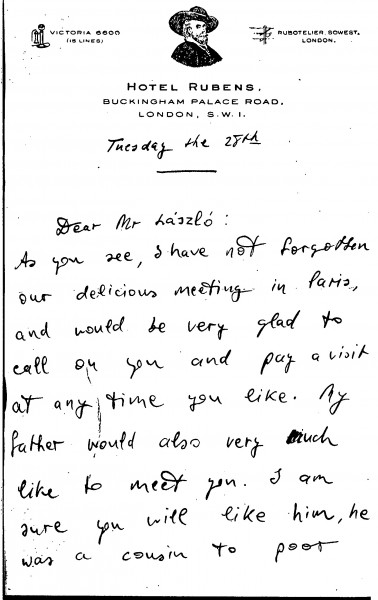 VICTORIA 6600
(15 LINES)
RUBOTELIER, SOWEST,
LONDON.
HOTEL RUBENS,
BUCKINGHAM PALACE ROAD,
LONDON, S.W.1.
Tuesday the 28th
Dear Mr László:
As you see, I have not forgotten
our delicious meeting in Paris,
and would be very glad to
call on you and pay a visit
at any time you like. My
father would also very much
like to meet you. I am
sure you will like him, he
was a cousin to poor